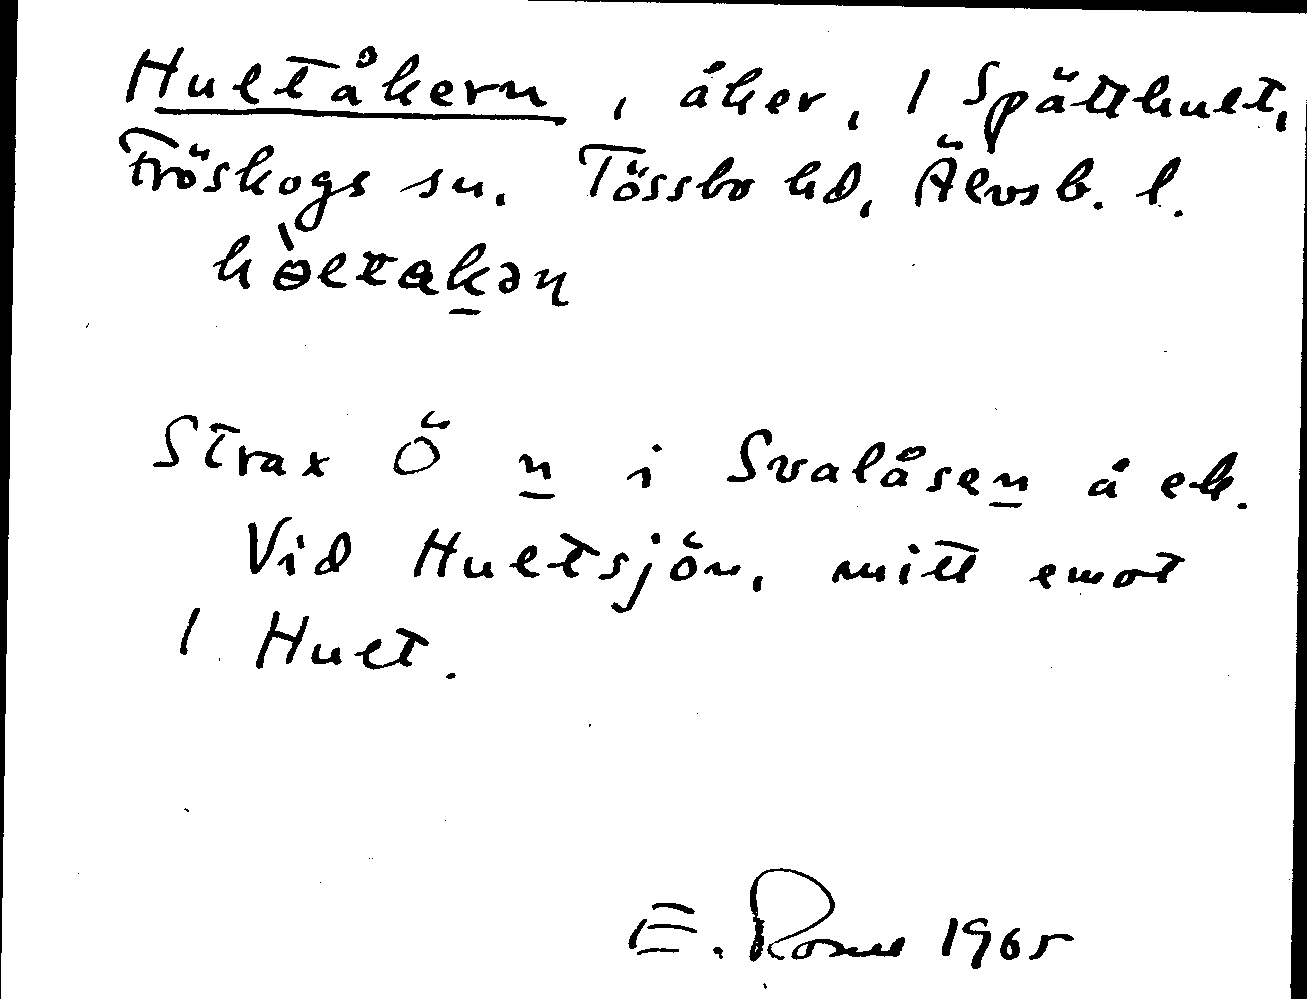 Hultåkern, åker, 1 Spätthult,
Fröskogs sn. Tössbo hd, Älvsb. l.
Strax Ö n i Svalåsen å ek.
Vid Hultsjön, mitt emot
1 Hult.
E. 1965